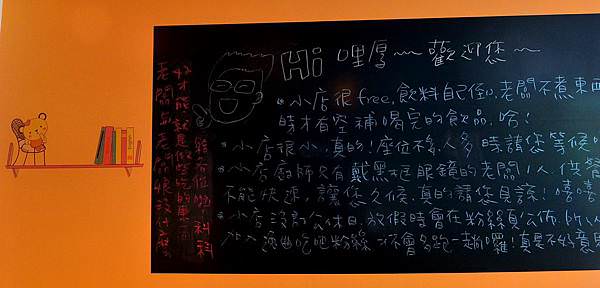 Hi 哩厚～歡迎您～
小店很free，飲料自己倒，老闆不煮東西
時才有空補喝完的飲品，哈！
小店很小，真的！座位不多，人多時請您等候
小店廚師只有戴黑框眼鏡的老闆1人，供餐
不能快速，讓您久候，真的請您見諒！嘻嘻
小店沒訂公休日，放假時會在粉絲頁公佈，所以
加入 吃吧粉絲 才不會多跑一趟囉！真是不好意思
老闆與老闆娘沒什麼
好才能就是做些吃的東西
餵各位啦！科科